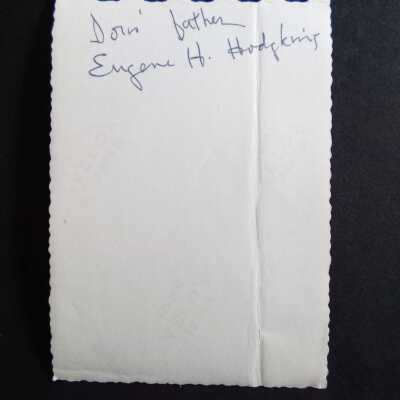 Doris' father
Eugene H. Hodgkins